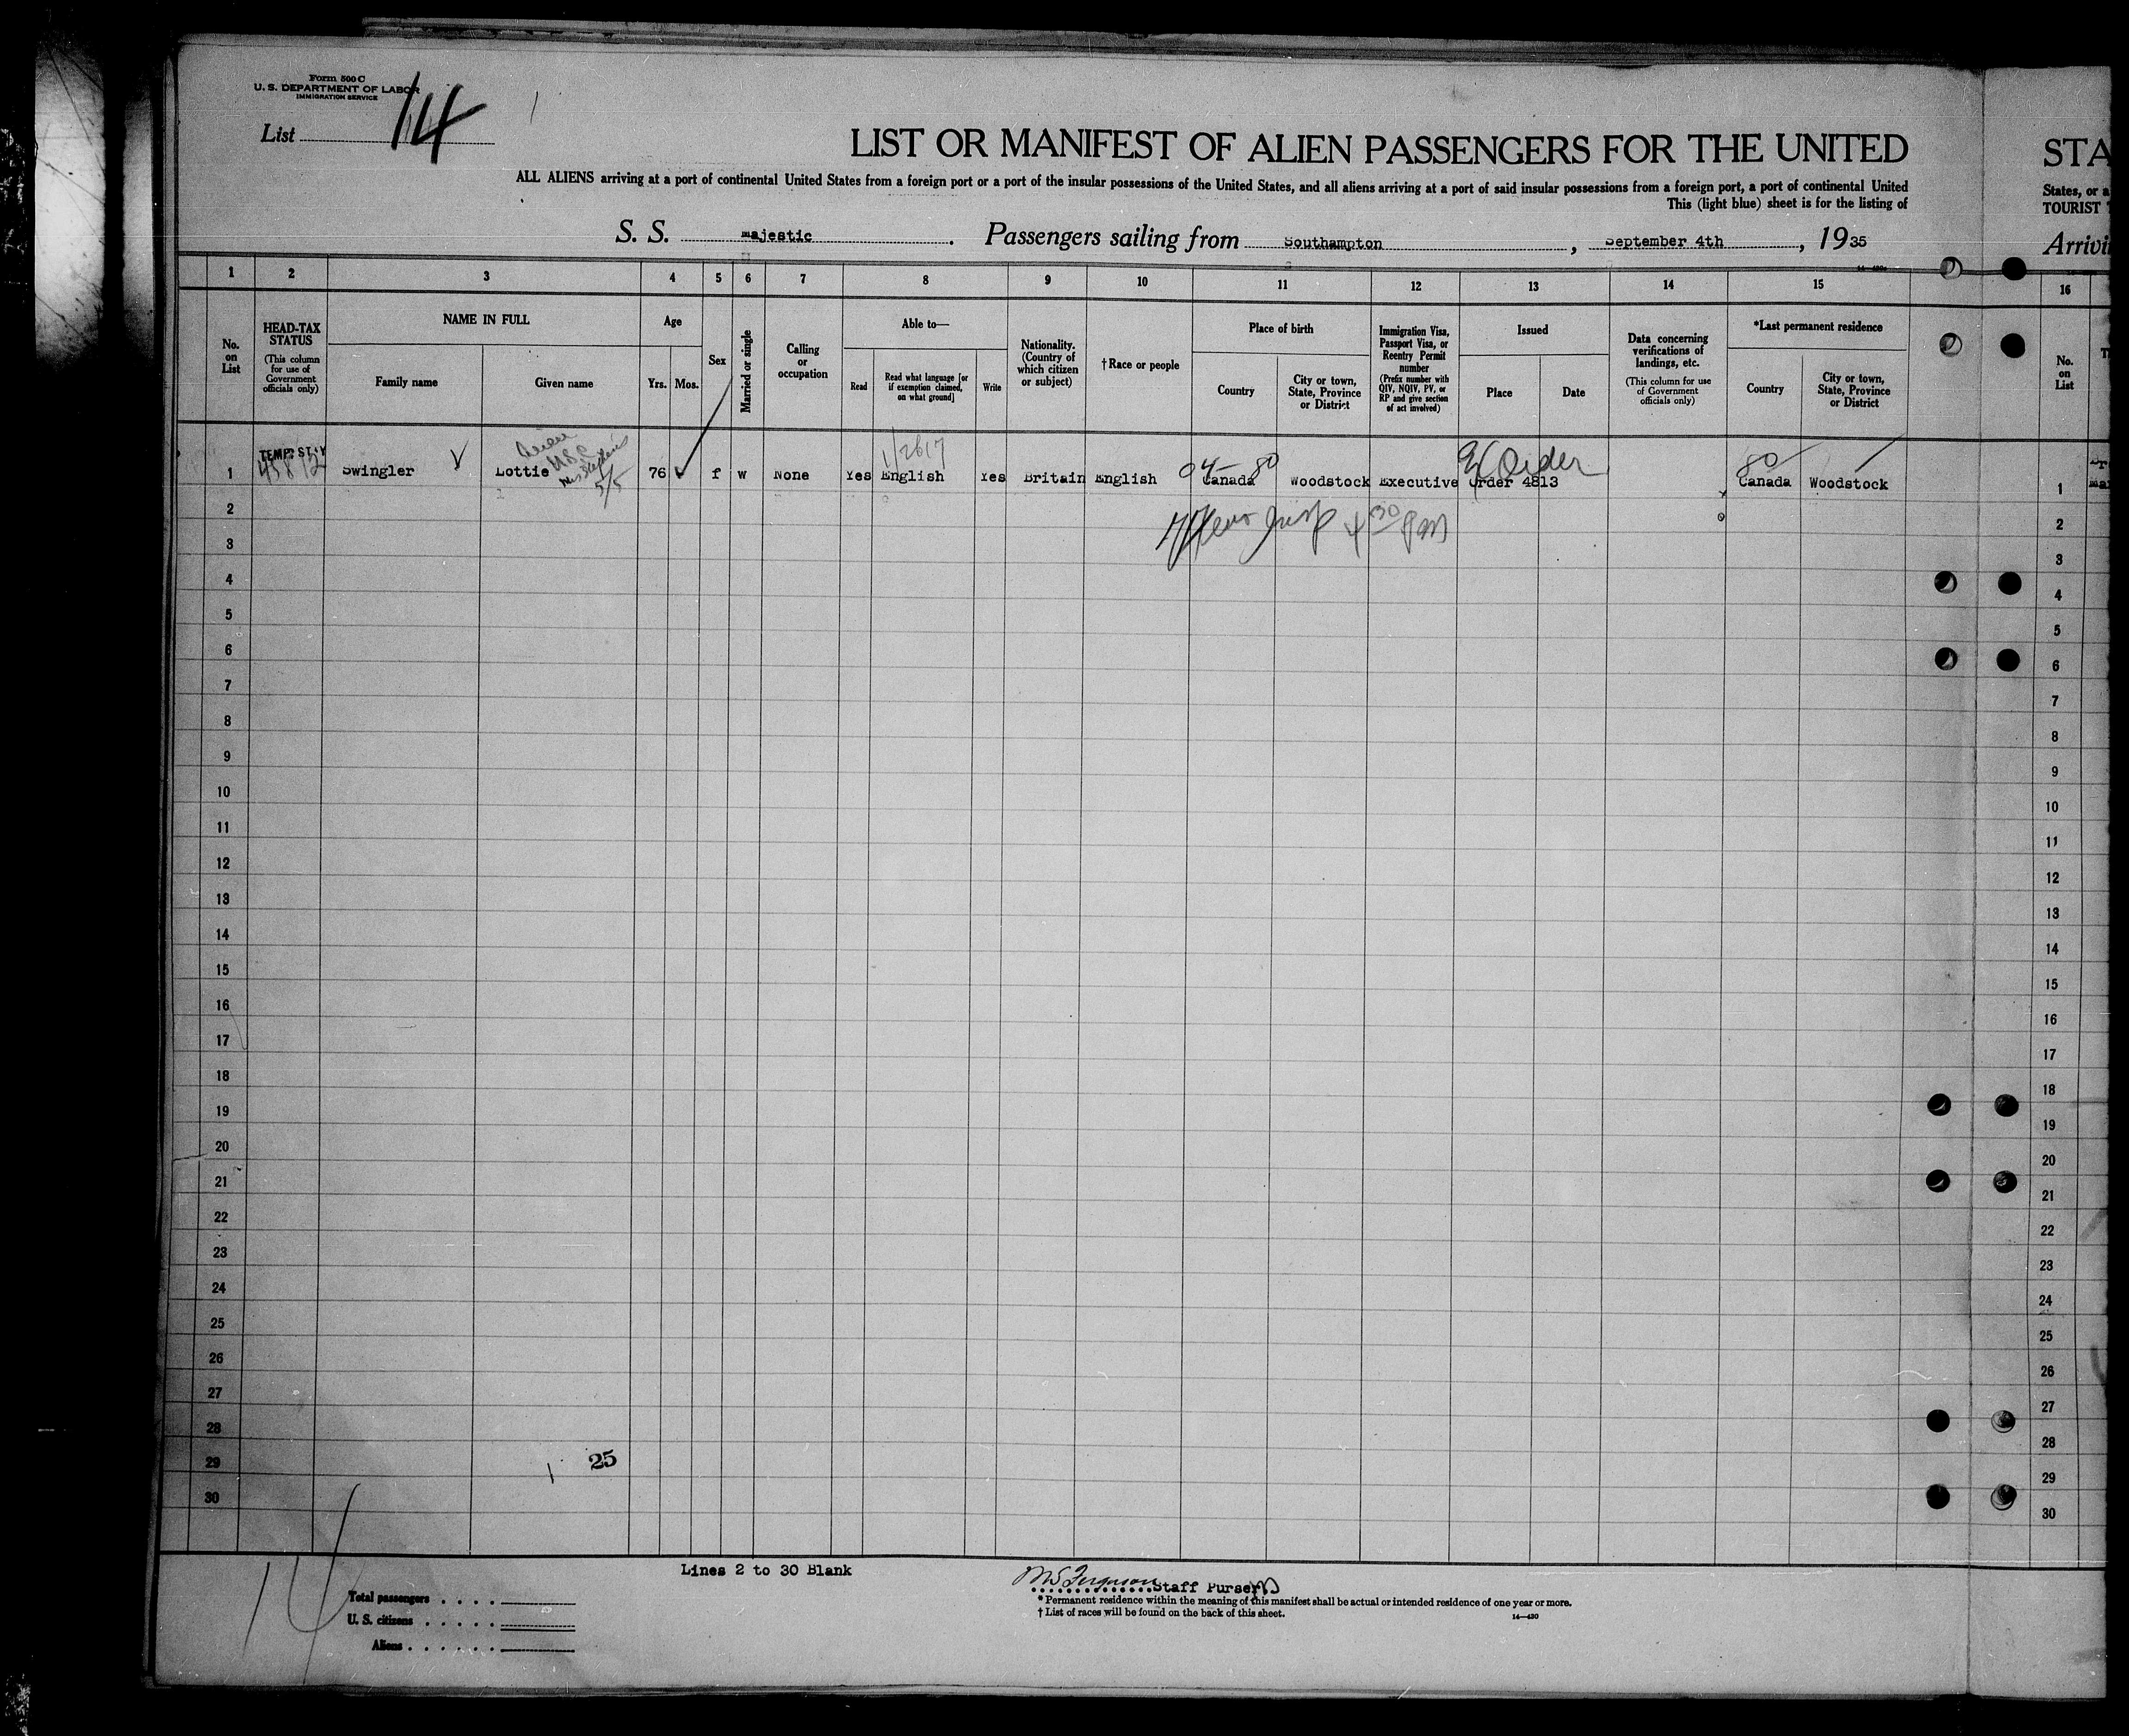 Form 500 C
U. S. DEPARTMENT OF LABOR
IMMIGRATION SERVICE
List 14
LIST OR MANIFEST OF ALIEN PASSENGERS FOR THE UNITED
STA
ALL ALIENS arriving at a port of continental United States from a foreign port or a port of the insular possessions of the United States, and all aliens arriving at a port of said insular possessions from a foreign port, a port of continental United
States, or a
This (light blue) sheet is for the listing of
TOURIST
S. S. majestic. Passengers sailing from Southampton, September 4th, 1935
Arrivi
1 2 3 4 5 6 7 8 9 10 11 12 13 14 15 16
No. on List
HEAD-TAX STATUS
(This column for use of Government officials only)
NAME IN FULL
Family name
Given name
Age
Yrs.
Mos.
Sex
Married or single
Calling or occupation
Able to—
Read
Read what language [or if exemption claimed, on what ground]
Write
Nationality. (Country of which citizen or subject)
†Race or people
Place of birth
Country
City or town, State, Province or District
Immigration Visa, Passport Visa, or Reentry Permit number
(Prefix number with QIV, NQIV, PV, or RP and give section of act involved)
Issued
Place
Date
Data concerning verifications of landings, etc.
(This column for use of Government officials only)
*Last permanent residence
Country
City or town, State, Province or District
No. on List
TEMP. ST'Y
1 Swingler Lottie 76 f w None Yes English Yes Britain English Canada Woodstock Executive Order 4813 Canada Woodstock 1
U.S.C.
5/5
04-80
Order
80
4 30 PM
2 2
3 3
4 4
5 5
6 6
7 7
8 8
9 9
10 10
11 11
12 12
13 13
14 14
15 15
16 16
17 17
18 18
19 19
20 20
21 21
22 22
23 23
24 24
25 25
26 26
27 27
28 28
29 29
25
30 30
14
Lines 2 to 30 Blank
Ferguson Staff Purser
Total passengers
U. S. citizens
Aliens
* Permanent residence within the meaning of this manifest shall be actual or intended residence of one year or more.
† List of races will be found on the back of this sheet.
14—430